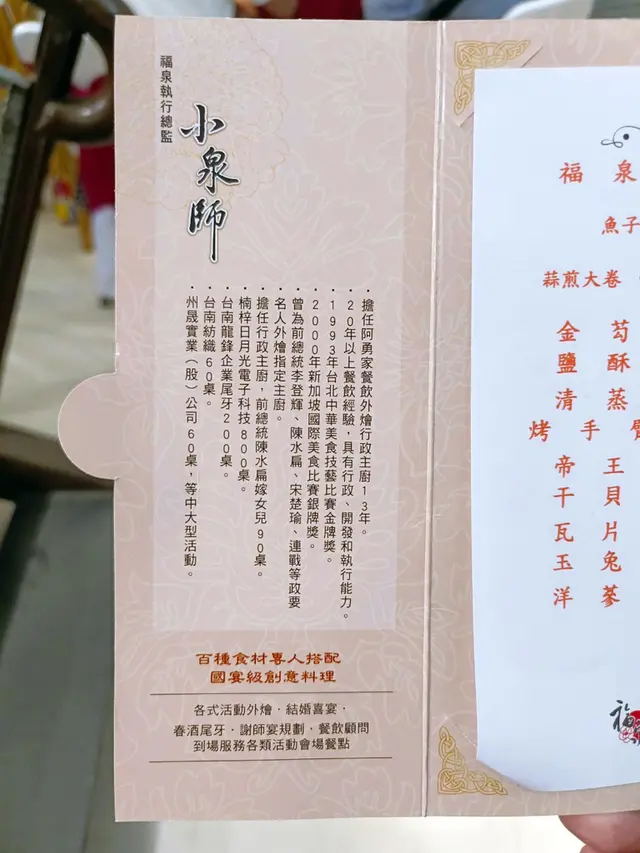 福泉執行總監
小泉師
·擔任阿勇家餐飲外燴行政主廚13年。
·20年以上餐飲經驗,具有行政、開發和執行能力。
·1993年台北中華美食技藝比賽金牌獎。
·2000年新加坡國際美食比賽銀牌獎。
·曾為前總統李登輝、陳水扁、宋楚瑜、連戰等政要
名人外燴指定主廚。
·擔任行政主廚,前總統陳水扁嫁女兒90桌。
·楠梓日月光電子科技800桌。
·台南龍鋒企業尾牙200桌。
·台南紡織60桌。
·州晟實業(股)公司60桌,等中大型活動。
百種食材專人搭配
國宴級創意料理
各式活動外燴·結婚喜宴·
春酒尾牙·謝師宴規劃·餐飲顧問
到場服務各類活動會場餐點
福泉
魚子
蒜煎大卷
金芶
鹽酥
清蒸
烤手
帝王
干貝
瓦片
玉兔
洋蔘
福